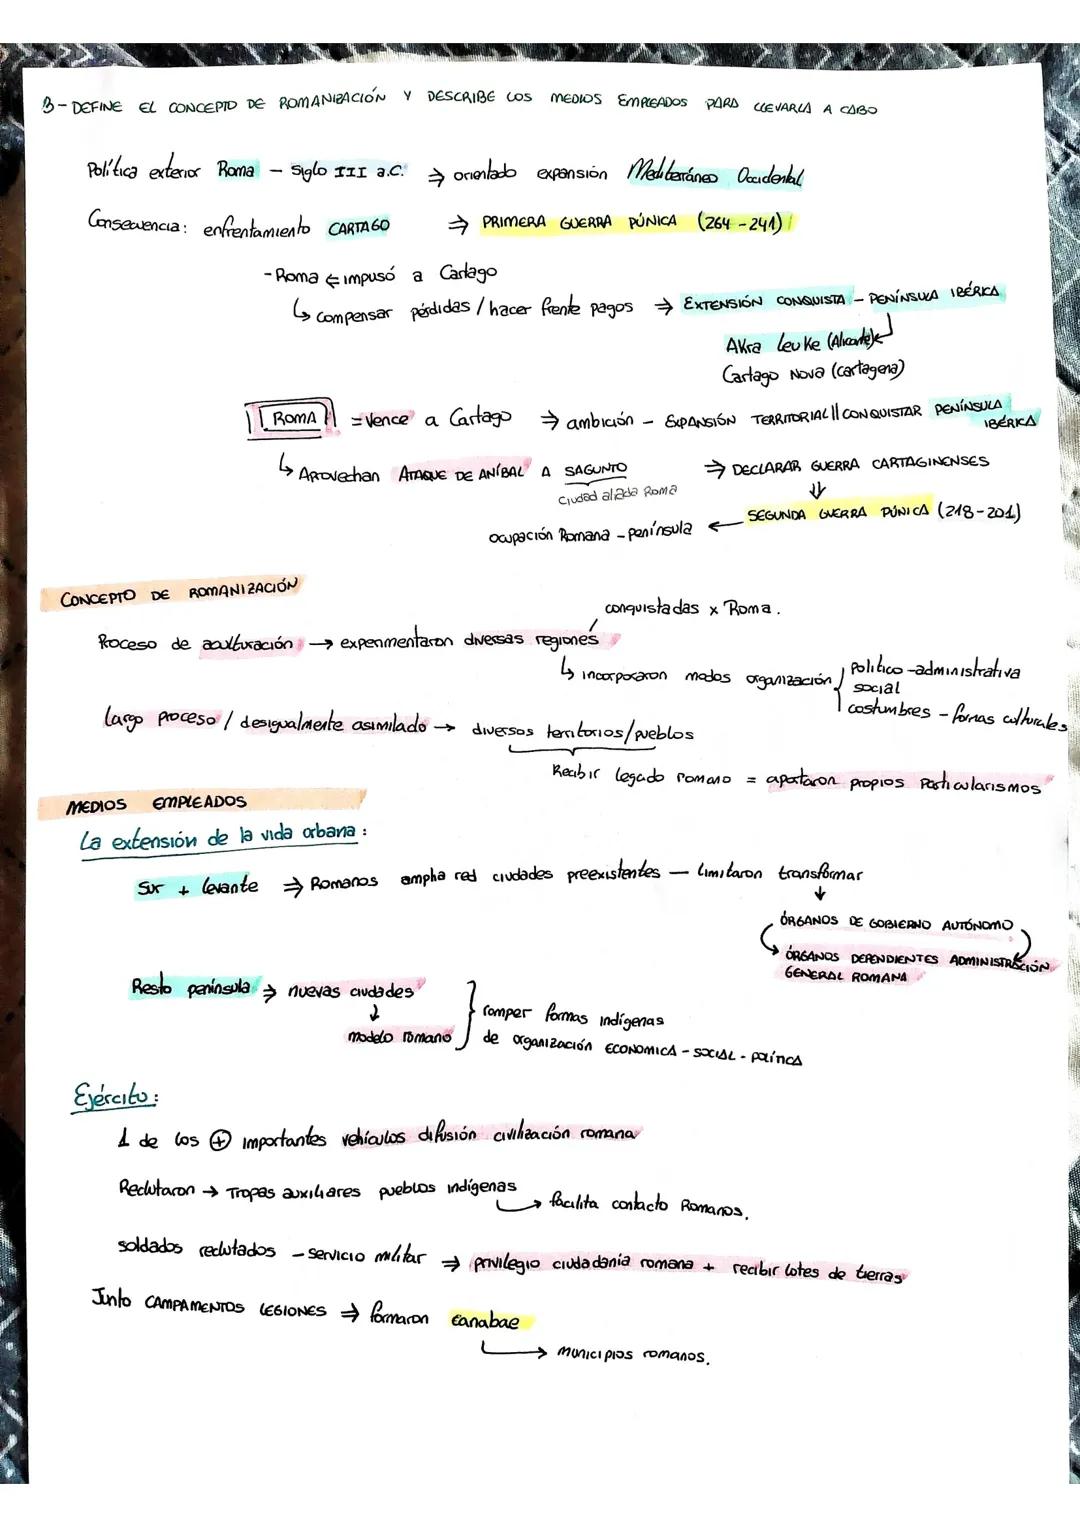 3- DEFINE EL CONCEPTO DE ROMANIZACIÓN Y DESCRIBE LOS MEDIOS EMPLEADOS PARA LLEVARLA A CABO
Política exterior Roma - Siglo III a.C. ⇒ orientado expansión Mediterráneo Occidental
Consecuencia: enfrentamiento CARTAGO ⇒ PRIMERA GUERRA PÚNICA (264-241)
- Roma ⇐ impusó a Cartago
↳ compensar pérdidas / hacer frente pagos ⇒ EXTENSIÓN CONQUISTA - PENÍNSULA IBÉRICA
Akra Leuke (Alicante)
Cartago Nova (cartagena)
ROMA = Vence a Cartago ⇒ ambición - EXPANSIÓN TERRITORIAL || CONQUISTAR PENÍNSULA IBÉRICA
↳ Aprovechan ATAQUE DE ANÍBAL A SAGUNTO ⇒ DECLARAR GUERRA CARTAGINENSES
Ciudad aliada Roma ⇓
ocupación Romana - península ← SEGUNDA GUERRA PÚNICA (218-201)
CONCEPTO DE ROMANIZACIÓN
conquistadas x Roma.
Proceso de aculturación → experimentaron diversas regiones
↳ incorporaron modos organización { político-administrativa
social
costumbres - formas culturales
Largo proceso / desigualmente asimilado → diversos territorios/pueblos
Recibir legado romano = aportaron propios particularismos
MEDIOS EMPLEADOS
La extensión de la vida urbana:
Sur + levante ⇒ Romanos amplia red ciudades preexistentes - limitaron transformar
↓
ÓRGANOS DE GOBIERNO AUTÓNOMO
ÓRGANOS DEPENDIENTES ADMINISTRACIÓN GENERAL ROMANA
Resto península ⇒ nuevas ciudades
↓
modelo romano } romper formas indígenas
de organización ECONOMICA - SOCIAL - POLÍTICA
Ejército:
1 de los ⊕ importantes vehículos difusión civilización romana
Reclutaron → Tropas auxiliares pueblos indígenas
→ facilita contacto Romanos.
soldados reclutados - servicio militar ⇒ privilegio ciudadanía romana + recibir lotes de tierras
Junto CAMPAMENTOS LEGIONES ⇒ formaron canabae
→ municipios romanos.